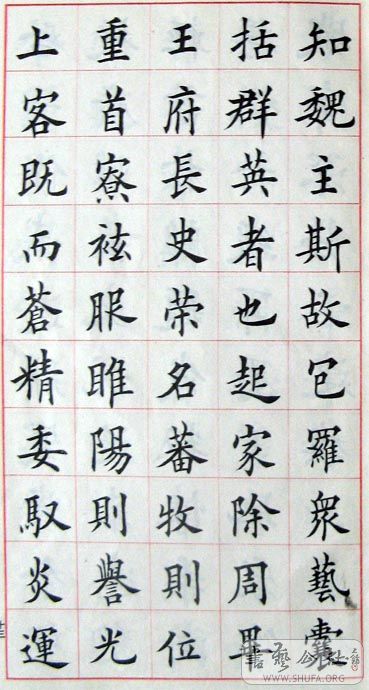 知魏主斯故包羅衆藝囊
括群英者也起家除周畢
王府長史荣名蕃牧則位
重首寮袨服睢陽則譽光
上客既而蒼精委馭炎運
書藝公社
WWW.SHUFA.ORG